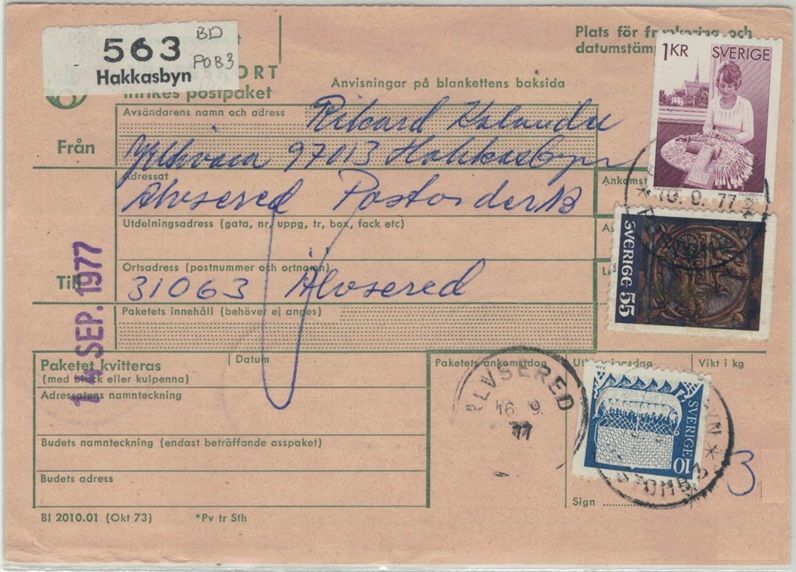 563
Hakkasbyn
BD
POB3
ORT
Inrikes postpaket
Anvisningar på blankettens baksida
Plats för frankering och
datumstäm
1 KR SVERIGE
Från
Avsändarens namn och adress
Rikard
97013 Hakkasbyn
Adressat
Älvsered Postorder AB
Ankomst
Utdelningsadress (gata, nr, uppg, tr, box, fack etc)
Till
Ortsadress (postnummer och ortnamn)
31063 Älvsered
Paketets innehåll (behöver ej anges)
14 SEP. 1977
77
SVERIGE 55
Paketet kvitteras
(med bläck eller kulpenna)
Datum
Paketets ankomstdag
Vikt i kg
Adressatens namnteckning
ÄLVSERED
16. 9.
77
SVERIGE
10
Budets namnteckning (endast beträffande asspaket)
Budets adress
3
Sign
BI 2010.01 (Okt 73)
*Pv tr Sth